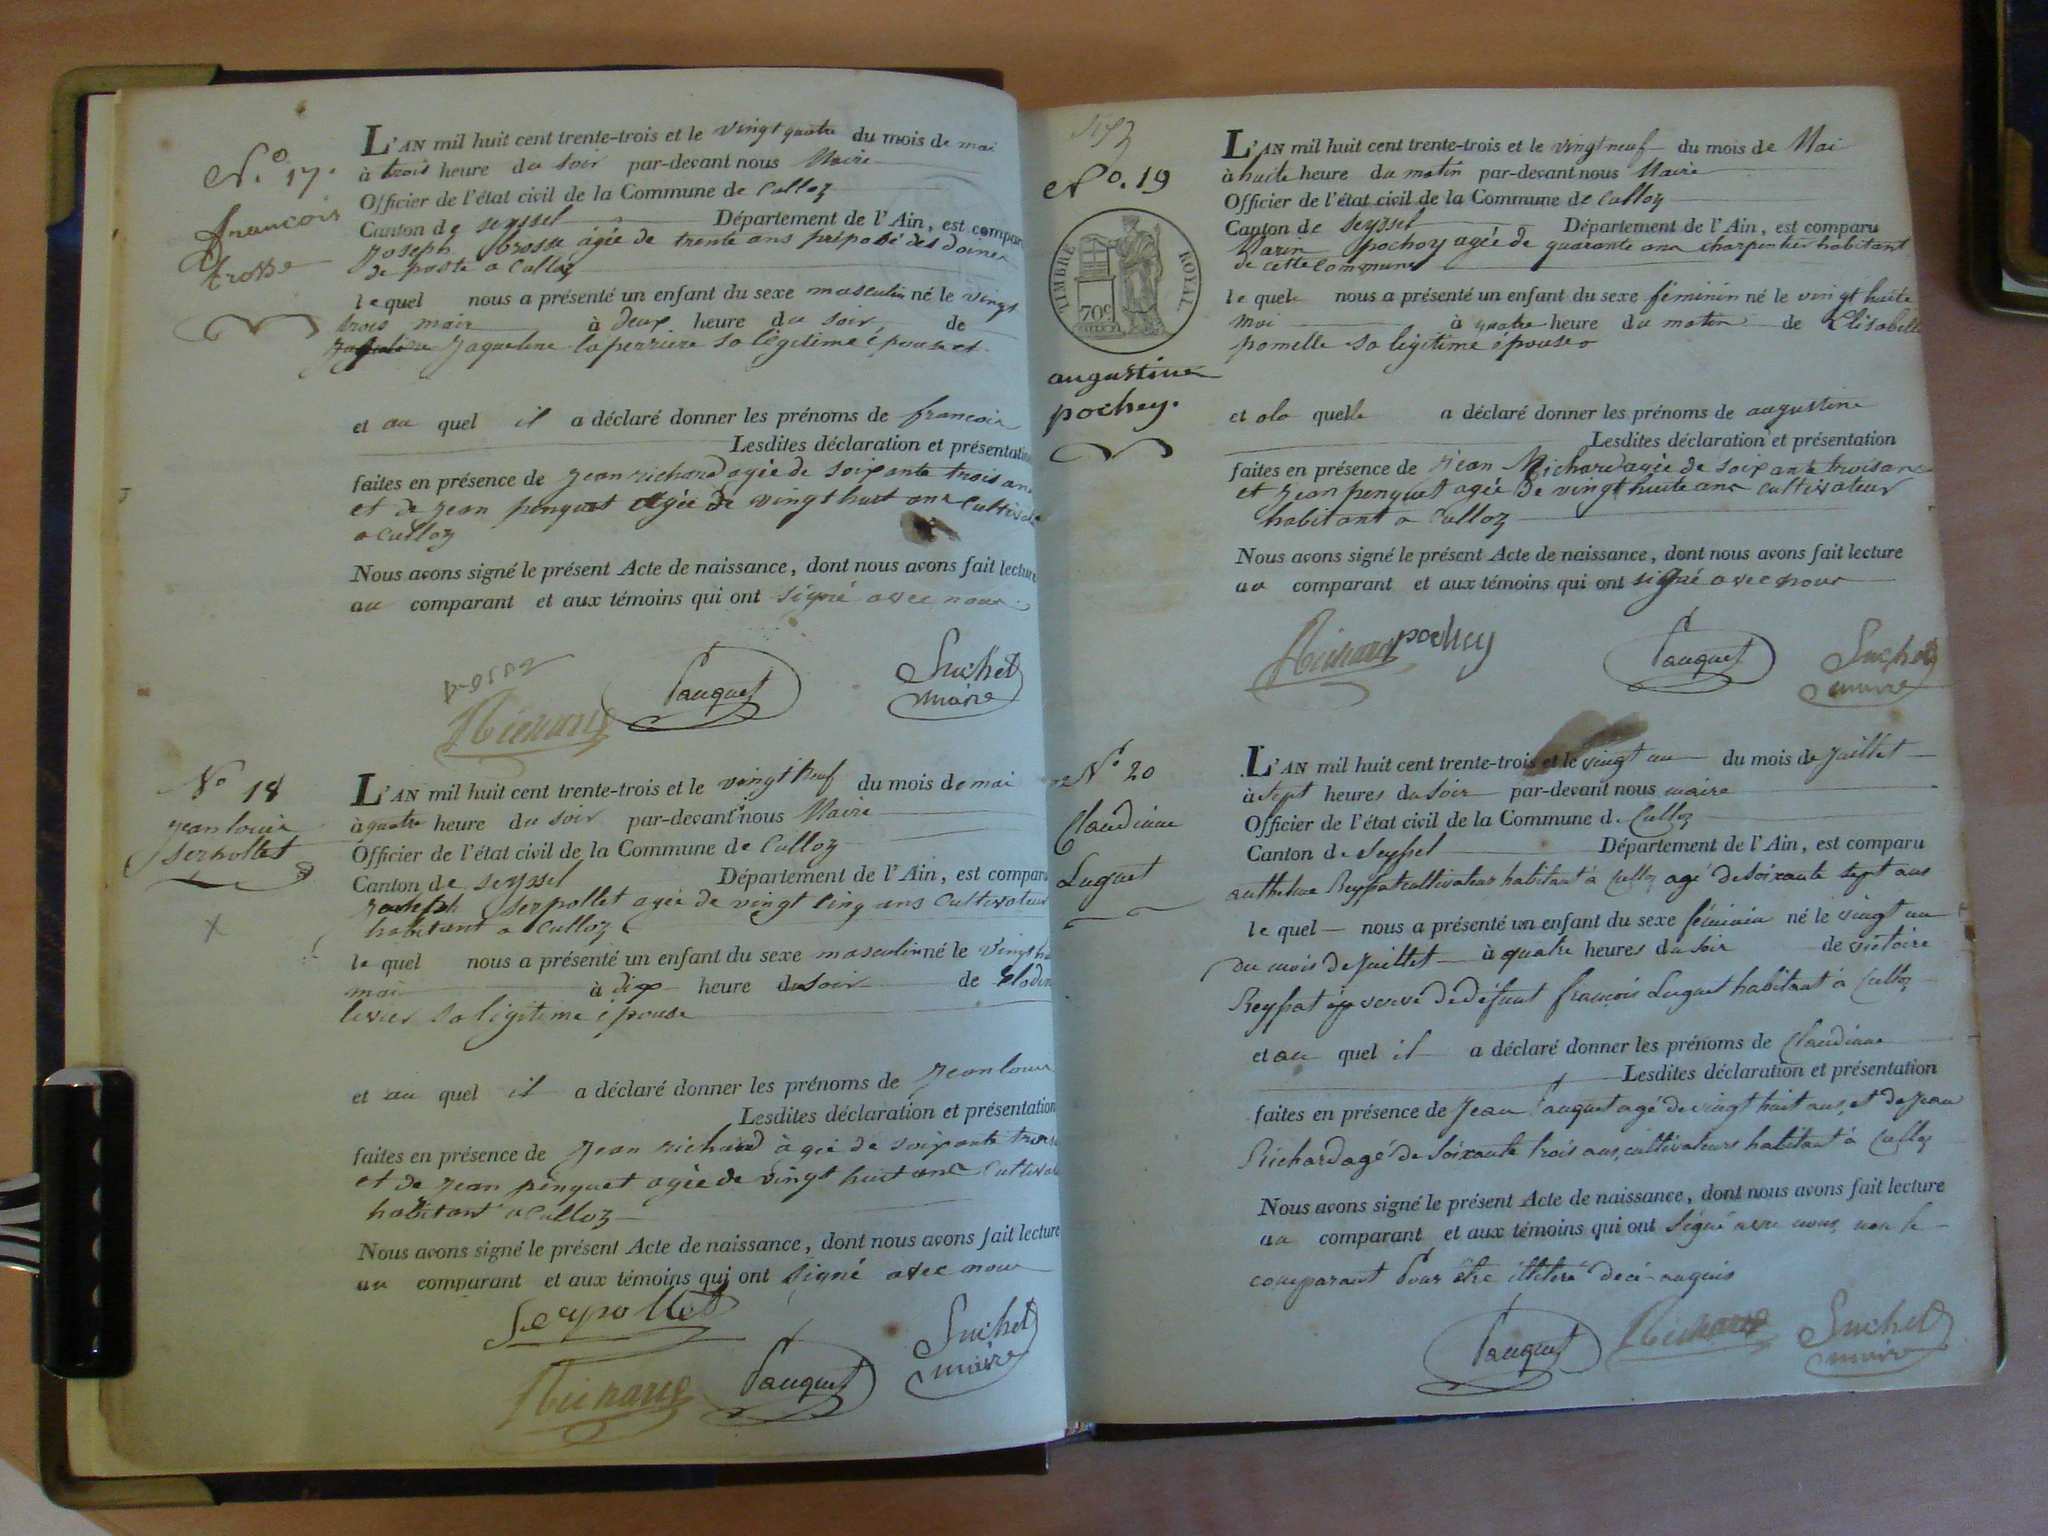 N.o 17.
françois
Brosse
L'AN mil huit cent trente-trois et le vingt quatre du mois de mai
à trois heure du soir par-devant nous Maire
Officier de l'état civil de la Commune de Culloz
Canton de seyssel Département de l'Ain, est compar
Joseph brosse agée de trente ans préposé des doines
de poste a Culloz
le quel nous a présenté un enfant du sexe masculin né le vingt
trois mai à deux heure du soir de
Jaqueline laperriere sa légitime épouse et
et au quel il a déclaré donner les prénoms de françois
Lesdites déclaration et présentation
faites en présence de Jean richard agée de soixante trois ans
et de jean penguet agée de vingt huit ans Cultiva
a Culloz
Nous avons signé le présent Acte de naissance, dont nous avons fait lecture
au comparant et aux témoins qui ont signé avec nous
Richard
Pauquet
Suchet
maire
No 18
jean louis
serpollet
L'AN mil huit cent trente-trois et le vingt neuf du mois de mai
à quatre heure du soir par-devant nous Maire
Officier de l'état civil de la Commune de Culloz
Canton de seyssel Département de l'Ain, est comparu
Joseph serpollet agée de vingt cinq ans Cultivateur
habitant a Culloz
le quel nous a présenté un enfant du sexe masculin né le vingt
mai à dix heure du soir de
sa légitime épouse
et au quel il a déclaré donner les prénoms de Jean louis
Lesdites déclaration et présentation
faites en présence de Jean richard àgée de soixante trois
et de jean penguet agée de vingt huit ans Cultiva
habitant a Culloz
Nous avons signé le présent Acte de naissance, dont nous avons fait lecture
au comparant et aux témoins qui ont signé avec nous
Serpollet
Richard
Pauquet
Suchet
maire
No. 19
TIMBRE ROYAL
70c
augustine
pochey.
L'AN mil huit cent trente-trois et le vingt neuf du mois de Mai
à huite heure du matin par-devant nous Maire
Officier de l'état civil de la Commune de Culloz
Canton de Seyssel Département de l'Ain, est comparu
Marin pochoy agée de quarante ans charpentier habitant
de cette commune
le quel nous a présenté un enfant du sexe féminin né le vingt huite
Mai à quatre heure du matin de Elisabette
pomelle sa légitime épouse
et a la quelle a déclaré donner les prénoms de augustine
Lesdites déclaration et présentation
faites en présence de jean Richard agée de soixante trois ans
et jean penguet agée de vingt huite ans cultivateur
habitant a Culloz
Nous avons signé le présent Acte de naissance, dont nous avons fait lecture
au comparant et aux témoins qui ont signé avec nous
Richard
pochey
Pauquet
Suchet
maire
No 20
Claudinne
Luguet
L'AN mil huit cent trente-trois et le vingt un du mois de Juillet
à sept heures du soir par-devant nous maire
Officier de l'état civil de la Commune de Culloz
Canton de Seyssel Département de l'Ain, est comparu
anthelme Reyssat cultivateur habitant à Culloz agé de soixante sept ans
le quel nous a présenté un enfant du sexe féminin né le vingt un
du mois de juillet à quatre heures du soir de victoire
Reyssat veuve de défunt françois Luguet habitant à Culloz
et au quel il a déclaré donner les prénoms de Claudinne
Lesdites déclaration et présentation
faites en présence de Jean Pauquet agé de vingt huit ans, et de Jean
Richard agé de soixante trois ans, cultivateurs habitant à Culloz
Nous avons signé le présent Acte de naissance, dont nous avons fait lecture
au comparant et aux témoins qui ont signé avec nous non le
comparant Pour être illitéré de ce
Pauquet
Richard
Suchet
maire